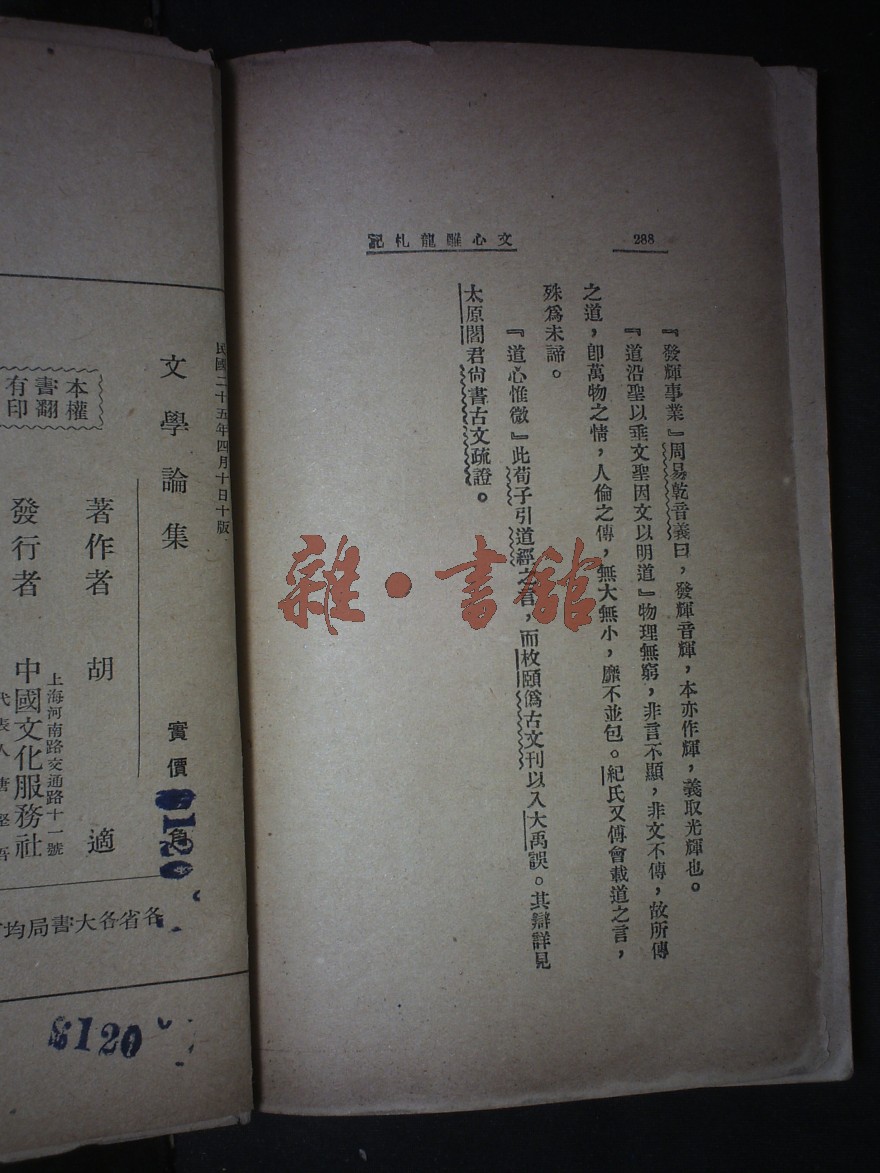 288
文心雕龍札記
『發輝事業』周易乾音義曰，發輝音輝，本亦作輝，義取光輝也。
『道沿聖以垂文聖因文以明道』物理無窮，非言不顯，非文不傳，故所傳
之道，卽萬物之情，人倫之傳，無大無小，靡不並包。紀氏又傅會載道之言，
殊爲未諦。
『道心惟微』此荀子引道經之言，而枚頤僞古文刊以入大禹謨。其辯詳見
太原閻君尙書古文疏證。
雜·書館
民國二十五年四月十日十版
文學論集
實價
角
8120
著作者 胡適
上海河南路交通路十一號
發行者 中國文化服務社
代表人 唐堅吾
本書有
權翻印
各省各大書局均
8120